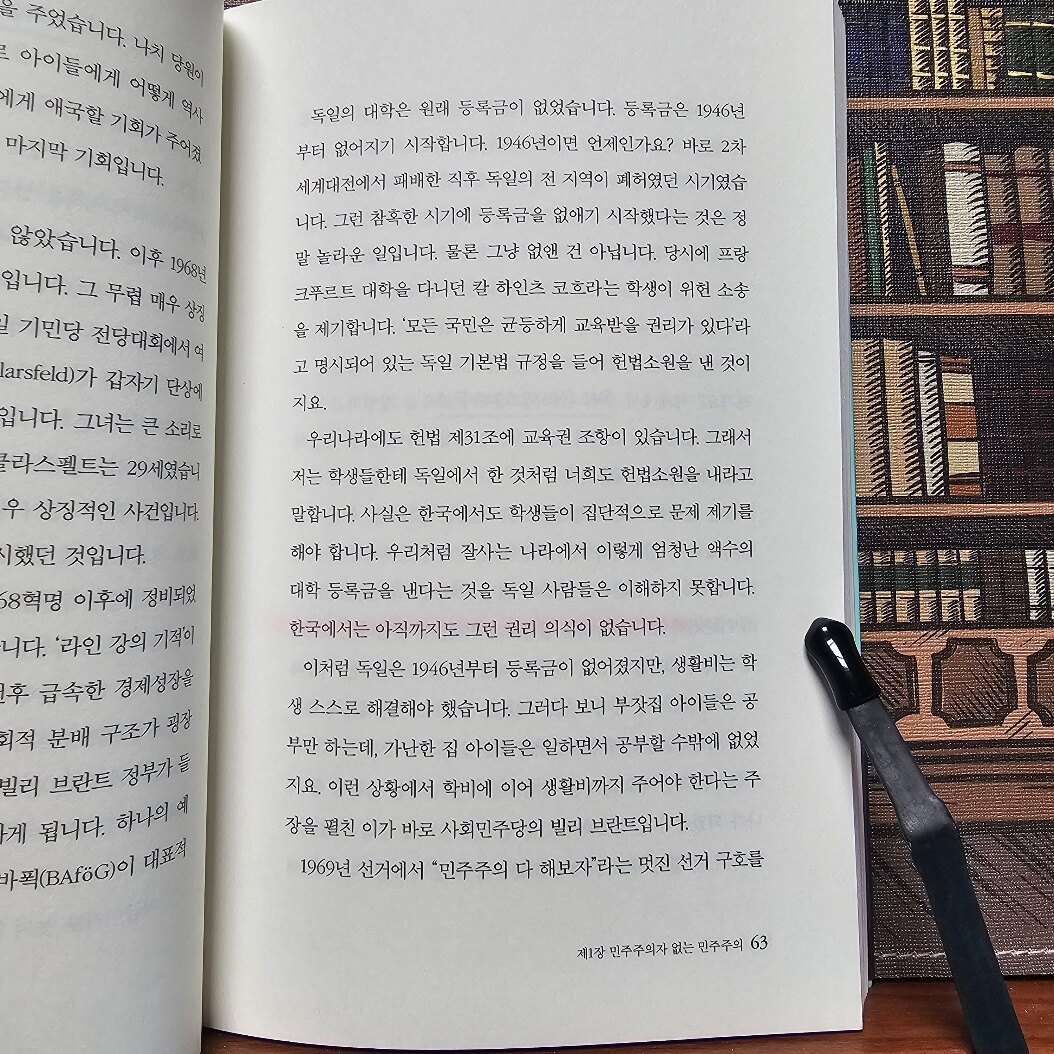 을 주었습니다. 나치 당원이
로 아이들에게 어떻게 역사
에게 애국할 기회가 주어졌
마지막 기회입니다.
않았습니다. 이후 1968년
입니다. 그 무렵 매우 상징
일 기민당 전당대회에서 여
larsfeld)가 갑자기 단상에
입니다. 그녀는 큰 소리로
클라스펠트는 29세였습니
우 상징적인 사건입니다.
시했던 것입니다.
68혁명 이후에 정비되었
니다. ‘라인 강의 기적’이
전후 급속한 경제성장을
회적 분배 구조가 굉장
빌리 브란트 정부가 들
하게 됩니다. 하나의 예
바푁(BAföG)이 대표적
독일의 대학은 원래 등록금이 없었습니다. 등록금은 1946년
부터 없어지기 시작합니다. 1946년이면 언제인가요? 바로 2차
세계대전에서 패배한 직후 독일의 전 지역이 폐허였던 시기였습
니다. 그런 참혹한 시기에 등록금을 없애기 시작했다는 것은 정
말 놀라운 일입니다. 물론 그냥 없앤 건 아닙니다. 당시에 프랑
크푸르트 대학을 다니던 칼 하인츠 코흐라는 학생이 위헌 소송
을 제기합니다. ‘모든 국민은 균등하게 교육받을 권리가 있다’라
고 명시되어 있는 독일 기본법 규정을 들어 헌법소원을 낸 것이
지요.
우리나라에도 헌법 제31조에 교육권 조항이 있습니다. 그래서
저는 학생들한테 독일에서 한 것처럼 너희도 헌법소원을 내라고
말합니다. 사실은 한국에서도 학생들이 집단적으로 문제 제기를
해야 합니다. 우리처럼 잘사는 나라에서 이렇게 엄청난 액수의
대학 등록금을 낸다는 것을 독일 사람들은 이해하지 못합니다.
한국에서는 아직까지도 그런 권리 의식이 없습니다.
이처럼 독일은 1946년부터 등록금이 없어졌지만, 생활비는 학
생 스스로 해결해야 했습니다. 그러다 보니 부잣집 아이들은 공
부만 하는데, 가난한 집 아이들은 일하면서 공부할 수밖에 없었
지요. 이런 상황에서 학비에 이어 생활비까지 주어야 한다는 주
장을 펼친 이가 바로 사회민주당의 빌리 브란트입니다.
1969년 선거에서 “민주주의 다 해보자”라는 멋진 선거 구호를
제1장 민주주의자 없는 민주주의 63